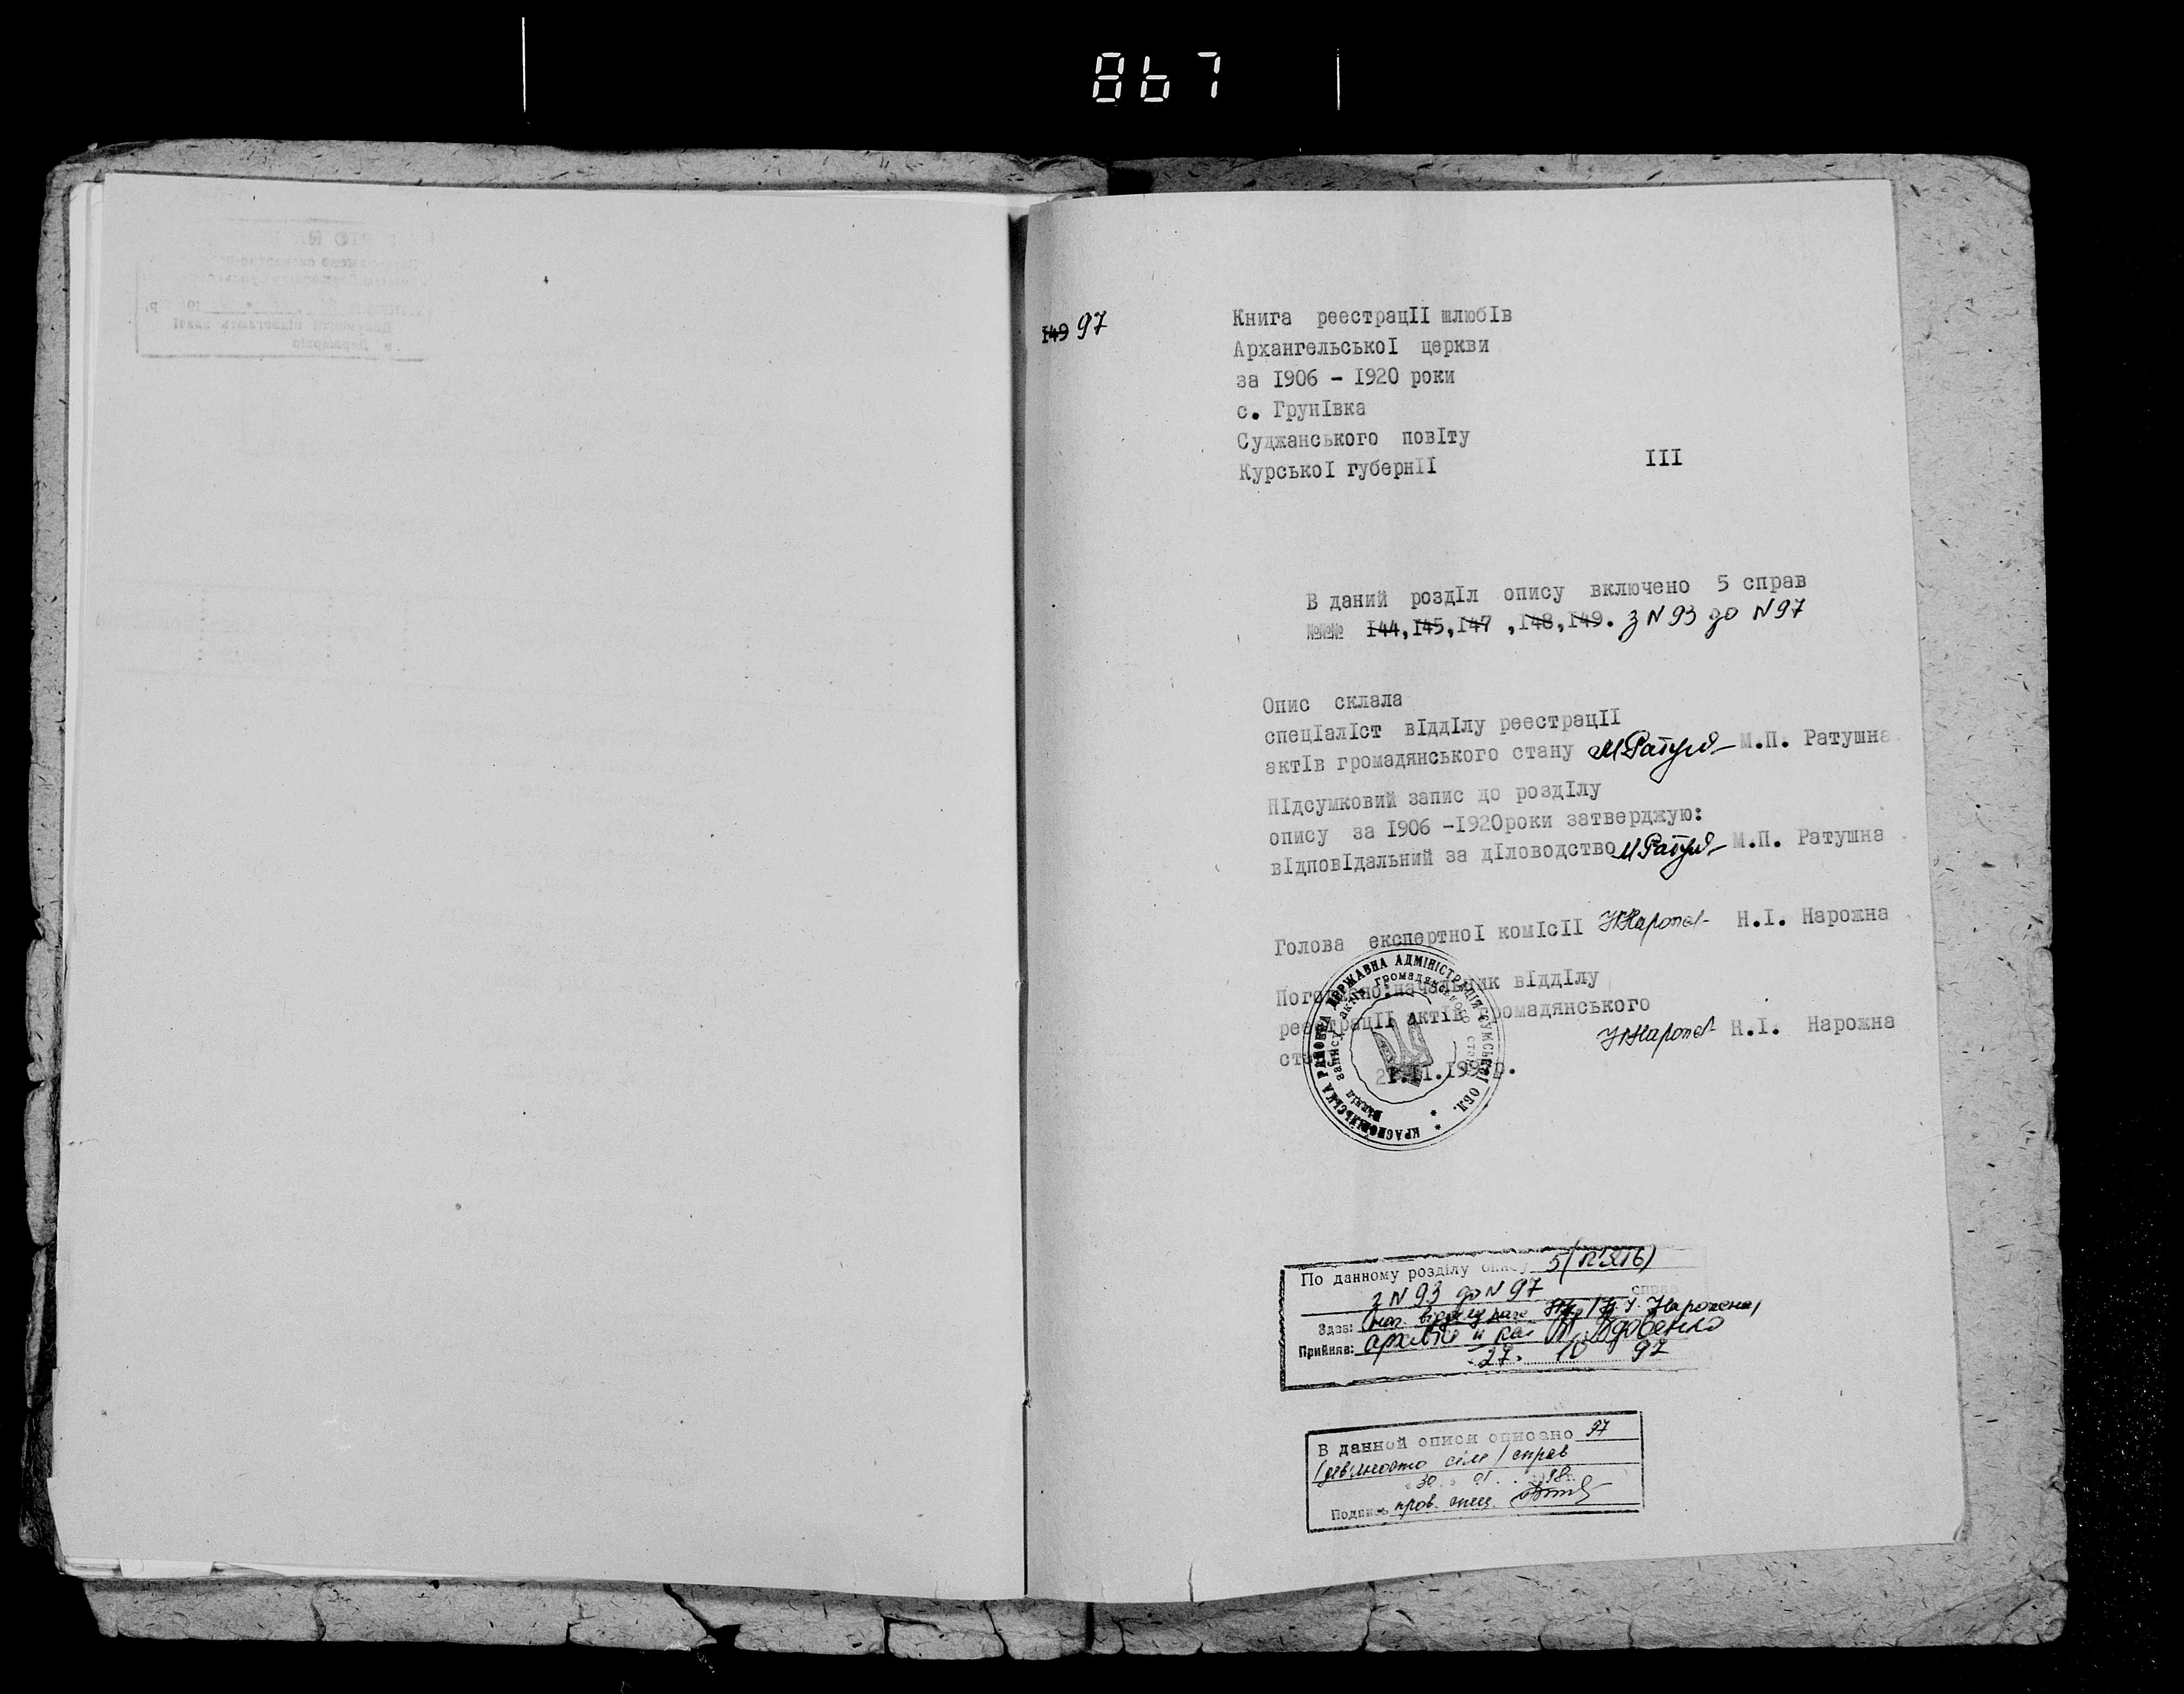 867
149 97
Книга реестрацІІ шлюбІв
АрхангельськоІ церкви
за І906 - І920 роки
с. ГрунІвка
Суджанського повІту
КурськоІ губернІІ ІІІ
В даний роздІл опису включено 5 справ
№№№ І44,І45,І47 ,І48,І49. з N 93 до N 97
Опис склала
спецІалІст вІддІлу реестрацІІ
актІв громадянського стану М.П. Ратушна
ПІдсумковий запис до роздІлу
опису за І906 -І920роки затверджую:
вІдповІдальний за дІловодство М.П. Ратушна
Голова експертноІ комІсІІ Н.І. Нарожна
Погоджено:начальник вІддІлу
реестрацІІ актІв громадянського
Н.І. Нарожна
КРАСНОПІЛЬСЬКА РАЙОННА ДЕРЖАВНА АДМІНІСТРАЦІЯ СУМСЬКОЇ ОБЛ.
Відділ запису актів громадянського стану
По данному розділу опису 5 (п'ять)
з N 93 до N 97 справ
Здав:
Прийняв:
27. 10 97
В данной описи описано 97
(дев'яносто сім) справ
30 01. 98
Подпись пров. спец.